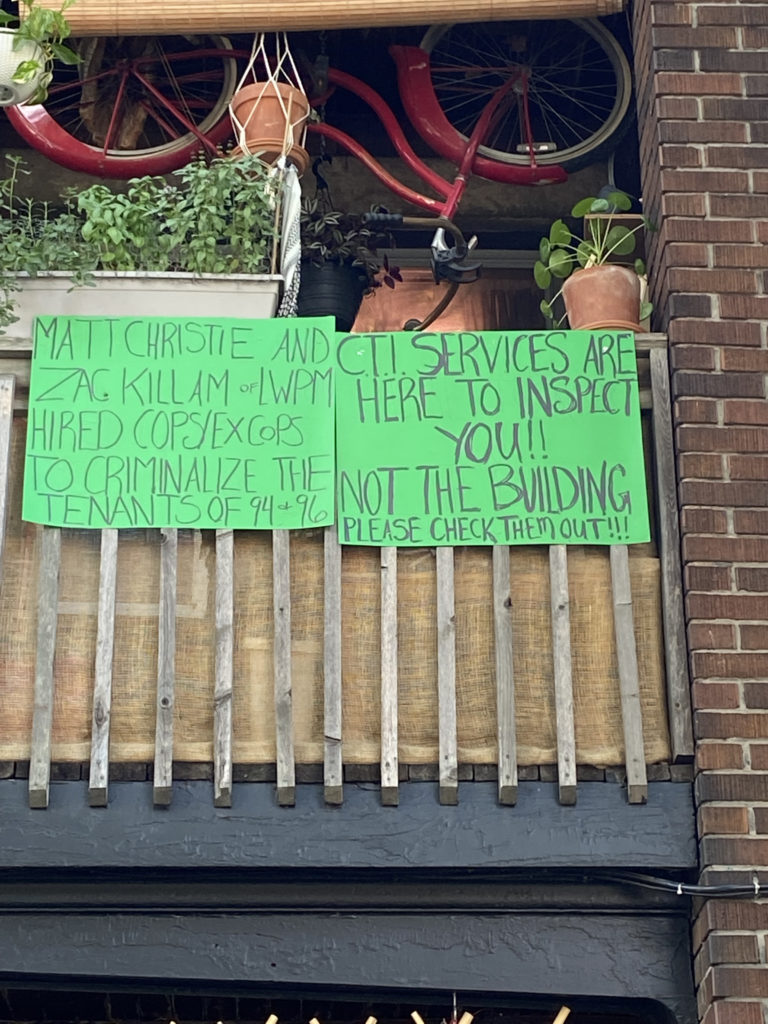 MATT CHRISTIE AND
ZAC KILLAM OF LWPM
HIRED COPS/EX COPS
TO CRIMINALIZE THE
TENANTS OF 94 & 96
C.T.I. SERVICES ARE
HERE TO INSPECT
YOU!!
NOT THE BUILDING
PLEASE CHECK THEM OUT!!!